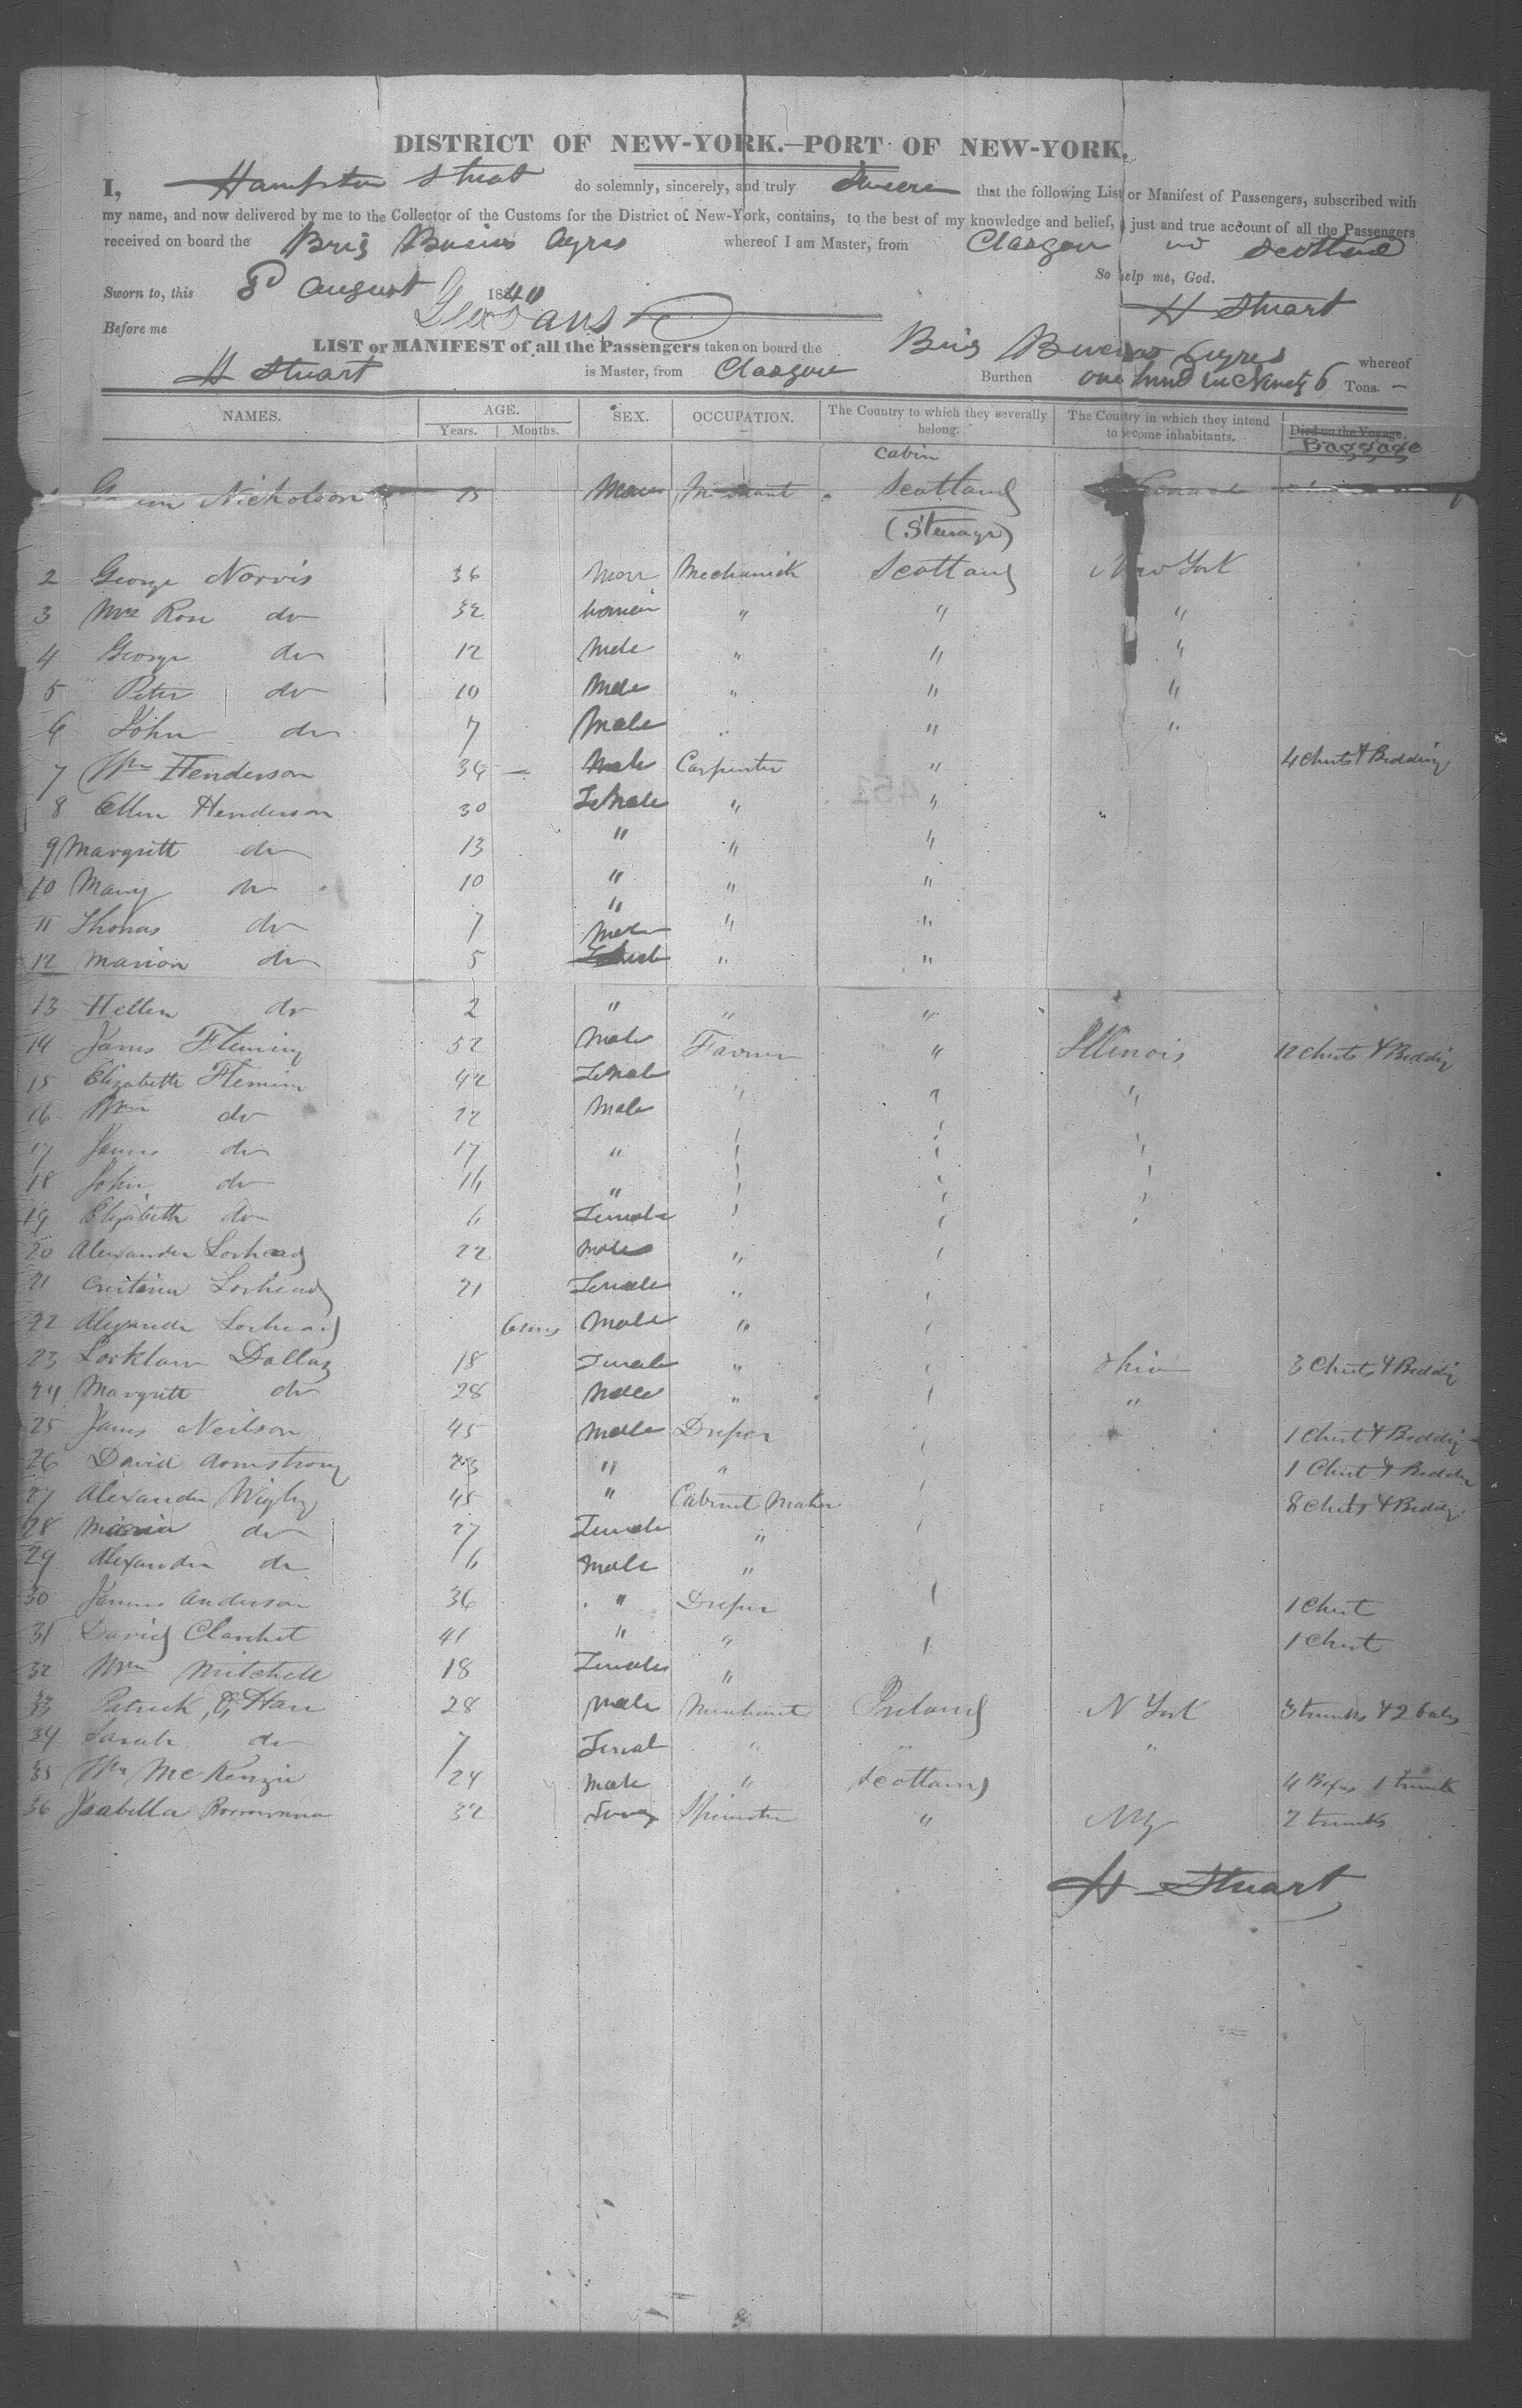 DISTRICT OF NEW-YORK.—PORT OF NEW-YORK.
I, Hampton Stuart do solemnly, sincerely, and truly Swere that the following List or Manifest of Passengers, subscribed with
my name, and now delivered by me to the Collector of the Customs for the District of New-York, contains, to the best of my knowledge and belief, a just and true account of all the Passengers
received on board the Brig Buenos Ayres whereof I am Master, from Glasgow in Scotland
So help me, God.
Sworn to, this 8 August 1840
H Stuart
Before me
LIST or MANIFEST of all the Passengers taken on board the Brig Buenos Ayres whereof
H Stuart is Master, from Glasgow Burthen one hund Ninety 6 Tons.
NAMES. AGE. SEX. OCCUPATION. The Country to which they severally belong. The Country in which they intend to become inhabitants. Died on the Voyage.
Years. Months. Baggage
Cabin
Nicholson Scotland
(Steerage)
2 George Norvis 36 Mechanick Scotland New York
3 Mrs Rose do 32 " " "
4 George do 12 Male " " "
5 Peter do 10 Male " " "
6 John do 7 Male " " "
7 Wm Henderson 34 Male Carpenter " 4 Chests & Bedding
8 Ellen Henderson 30 Female " "
9 Margritt do 13 " " "
10 Mary do 10 " " "
11 Thomas do 7 Male " "
12 Marion do 5 " "
13 Hellen do 2 " " "
14 James Fleming 52 Male Farmer " Illinois 12 Chests & Beddig
15 Elizabeth Fleming 42 Female " " "
16 Wm do 22 Male
17 James do 17 "
18 John do "
19 Elizabeth do Female
20 Alexander Lorhead 22 Male "
21 Lorhead 21 Female "
22 Alexander Lorhead Male "
23 Dallas 18 Female " Ohio 3 Chests & Beddig
24 Margritt do 28 Male " "
25 James Neilson 45 Male 1 Chest & Beddig
26 David Armstrong 23 " " 1 Chest & Beddin
27 Alexander 45 " Cabinet Maker 8 Chests & Beddig
28 do 27 Female "
29 Alexander do Male "
30 James Anderson 36 " 1 Chest
31 David 41 " " 1 Chest
32 Wm Mitchell 18 Females "
33 Patrick O Hare 28 Male Merchant Ireland N York 3 trunks & 2 bales
34 Sarah do 7 " " "
35 Wm McKenzie 24 Male " Scotland 4 Boxes 1 trunk
36 Isabella 32 Spinster " NY 2 trunks
H Stuart